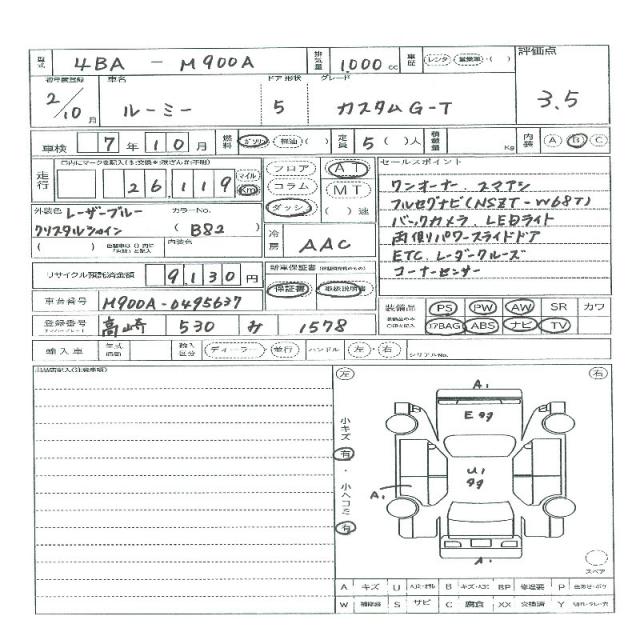 型式 4BA - M900A 排気量 1,000 cc 車歴 レンタ・営業車・( ) 評価点
初年度登録 車名 ドア 形状 グレード
2/10月 ルーミー 5 カスタムG-T 3.5
車検 7年10月 燃料 ガソリン・軽油・( ) 定員 5( )人 積載量 Kg 内装 A B C
走行 26,119 マイル Km フロア AT
コラム MT
ダッシュ ( )速
セールスポイント
ワンオーナー スマアシ
フルセグナビ(NSZT-W68T)
バックカメラ LEDライト
両側パワースライドドア
ETC レーダークルーズ
コーナーセンサー
外装色 レーザーブルー カラーNo.
クリスタルシャイン (B82)
( ) 内装色
冷房 AAC
リサイクル預託済金額 9,130円
新車保証書
保証書 取扱説明書
車台番号 M900A-0495637
装備品 PS PW AW SR カワ
I7BAG ABS ナビ TV
登録番号 高崎 530 み 1578
輸入車 年式 輸入区分 ディーラー・並行 ハンドル 左・右 シリアルNo.
左 右
A1
E99
小キズ 有・小ヘコミ 有
U1
99
A1
A1
スペア
A キズ U B BP 修理要 P
W S サビ C 腐食 XX 交換済 Y